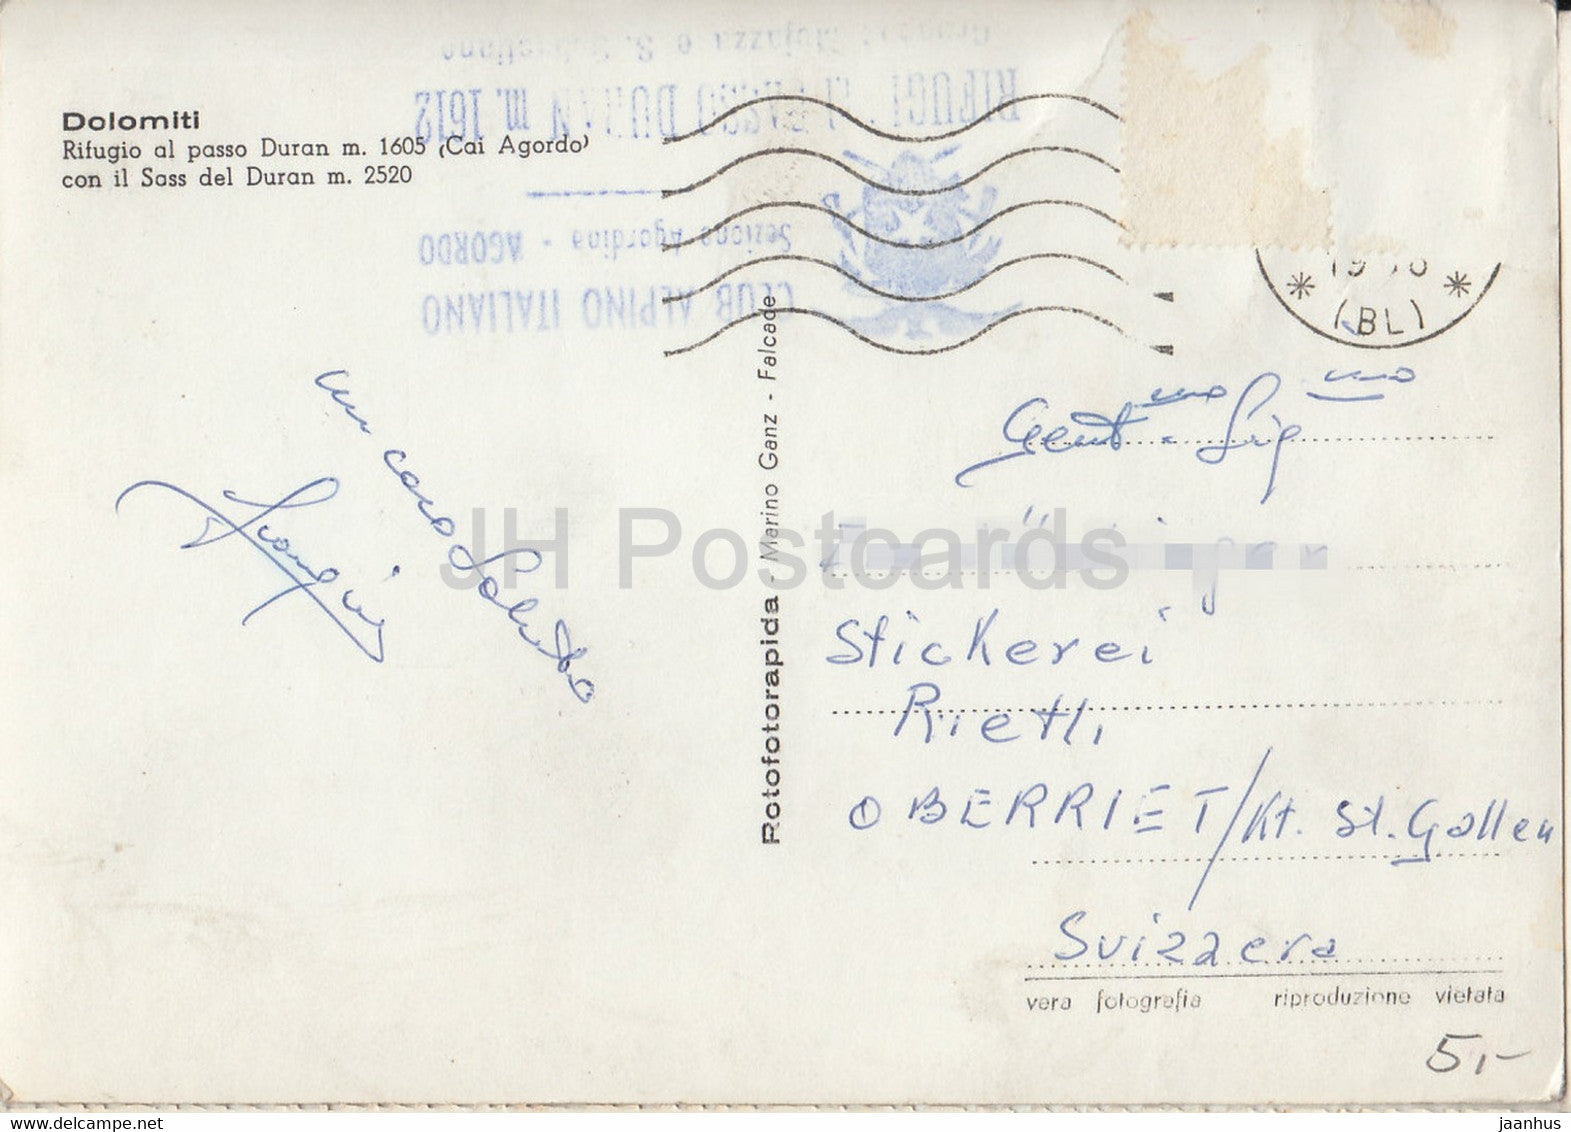 Dolomiti
Rifugio al passo Duran m. 1605 (Cai Agordo)
con il Sass del Duran m. 2520
CLUB ALPINO ITALIANO
Sezione Agordina - AGORDO
PASSO DURAN m. 1612
(BL)
un caro Saluto
Rotofotorapida - Marino Ganz - Falcade
Gent.mo Sig.
Stickerei
Rietli
OBERRIET/Kt. St. Gallen
Svizzera
vera fotografia riproduzione vietata
5,-
JH Postcards
jaanhus @ delcampe.net